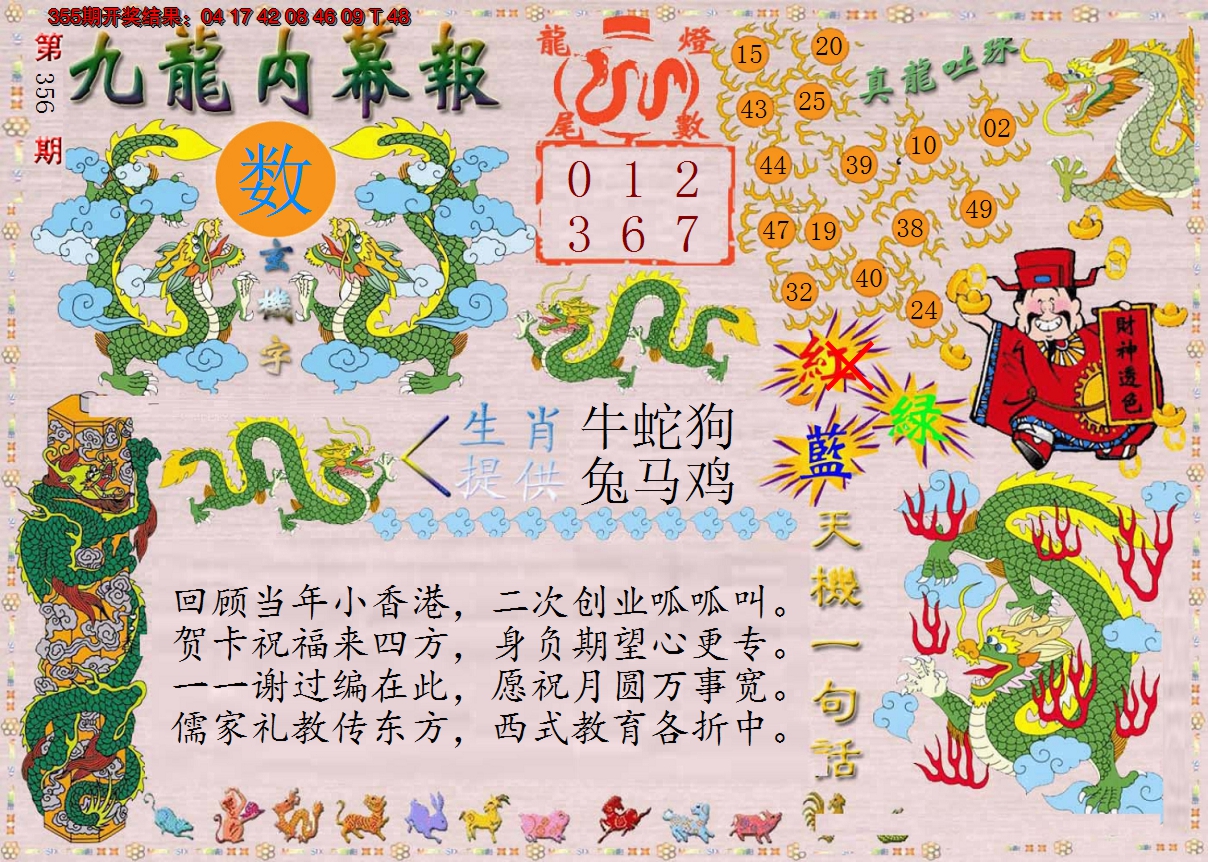 355期开奖结果：04 17 42 08 46 09 T 48
第356期
九龍内幕報
数
玄機字
龍燈
尾數
0 1 2
3 6 7
真龍吐珠
15 20
43 25
10 02
44 39
49
47 19 38
40
32 24
紅
綠
藍
財神透色
生肖 牛蛇狗
提供 兔马鸡
天機一句話
回顾当年小香港，二次创业呱呱叫。
贺卡祝福来四方，身负期望心更专。
一一谢过编在此，愿祝月圆万事宽。
儒家礼教传东方，西式教育各折中。